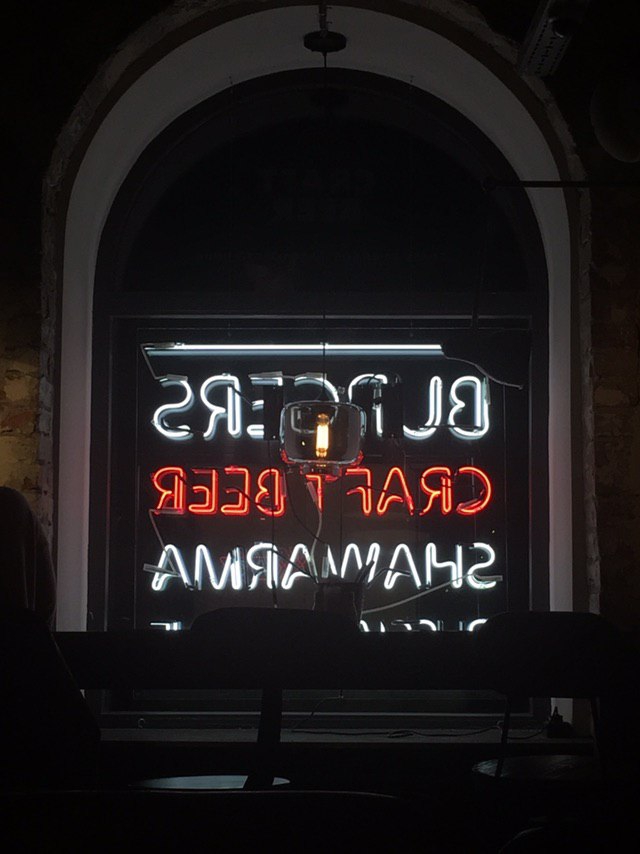 BURGERS
CRAFT BEER
SHAWARMA